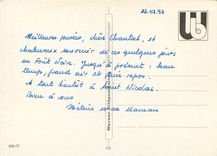 22.07.94
Meilleures pensées, chère Chantal, et
chaleureux souvenir de ces quelques jours
en Forêt Noire. Jusqu'à présent : beau
temps, grand air et bon repos.
A tout bientôt à Saint Nicolas.
Bien à vous
Hélène et sa Maman